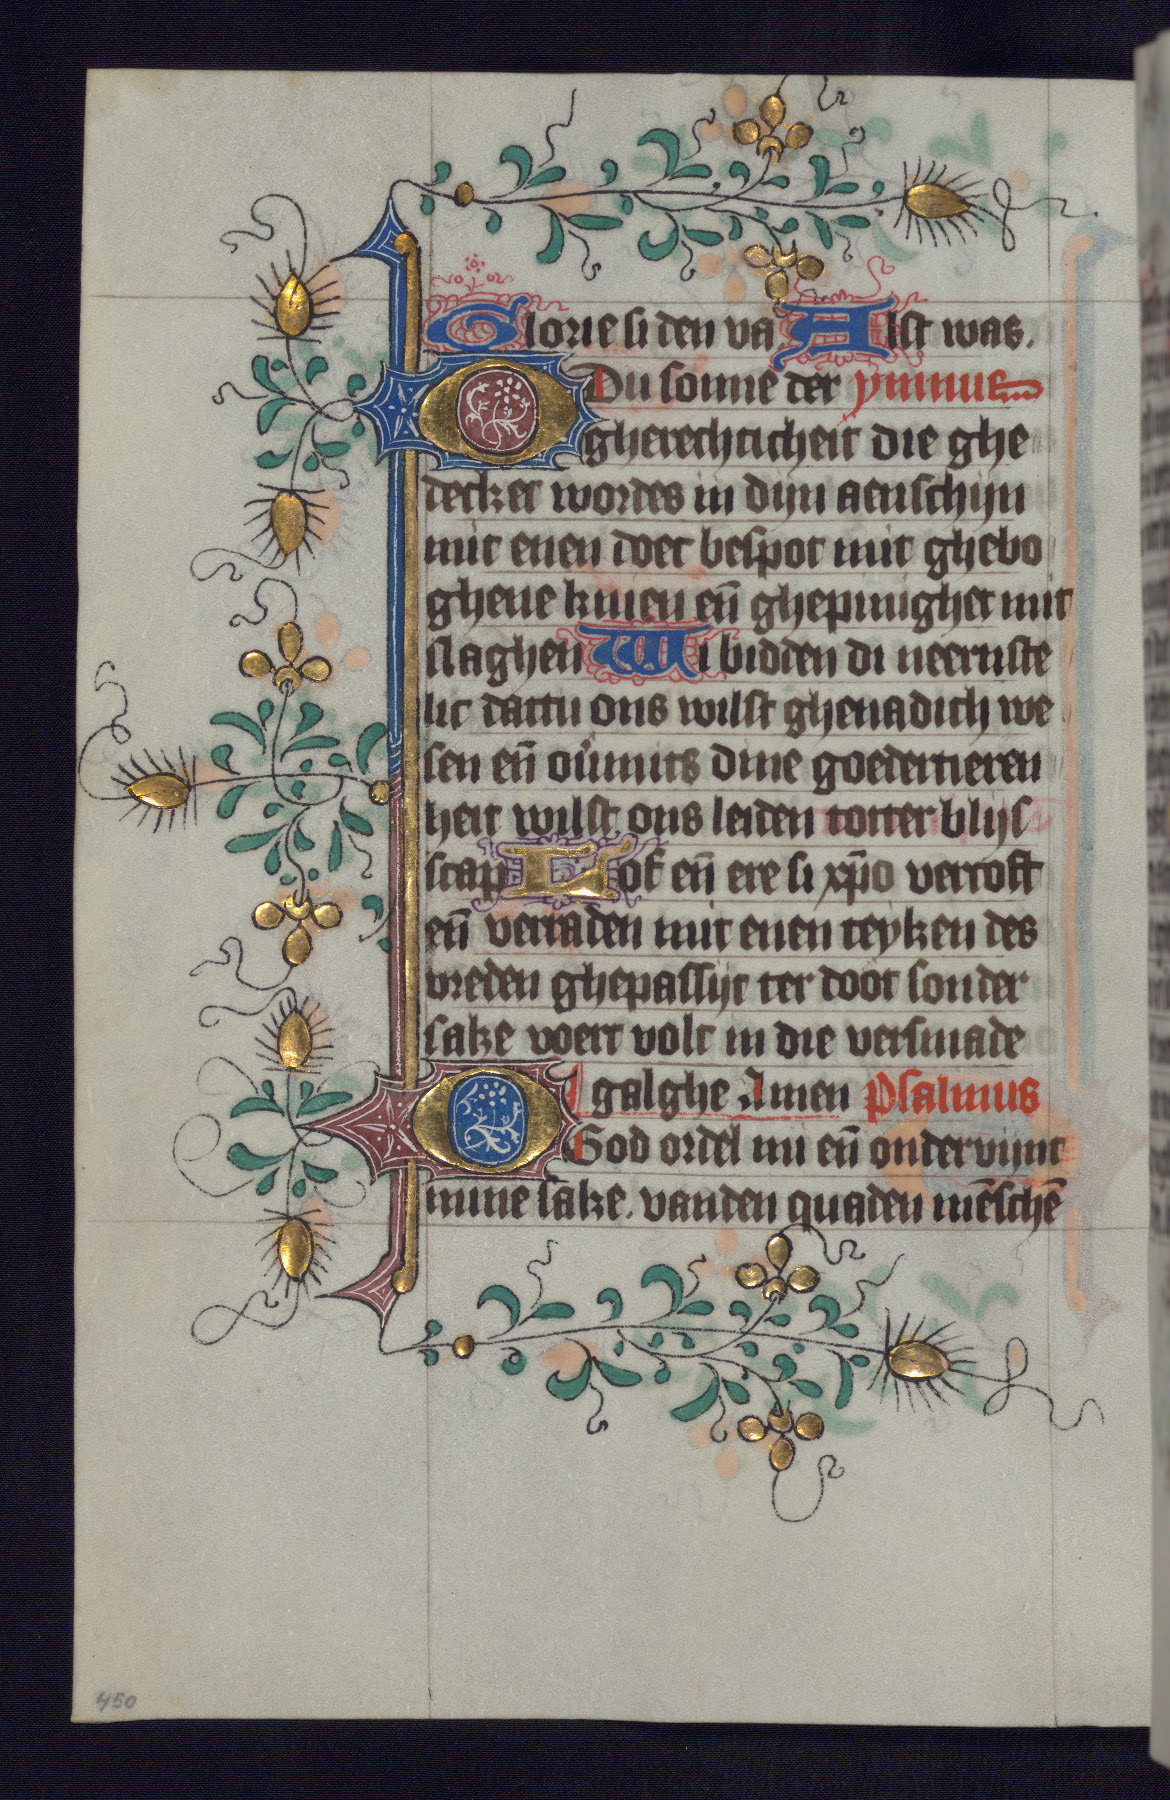 Glorie si den va Alst was.
O Du sonne der ymnus
gherechticheit die ghe
decket wordes in dijn aenschijn
mit enen doec bespot mit ghebo
ghene knien en̄ ghepinighet mit
slaghen Wi bidden di neernste
lic dattu ons wilst ghenadich we
sen en̄ ouͥmits dine goedertieren
heit wilst ons leiden totter blijs
scap Lof en̄ ere si xp̄o vercoft
en̄ verraden mit enen teyken des
vreden ghepassijt ter doot sonder
sake voert volc in die versmade
galghe Amen Psalmus
O God ordel mi en̄ ondervijnt
mine sake. vanden quaden mēschē
450